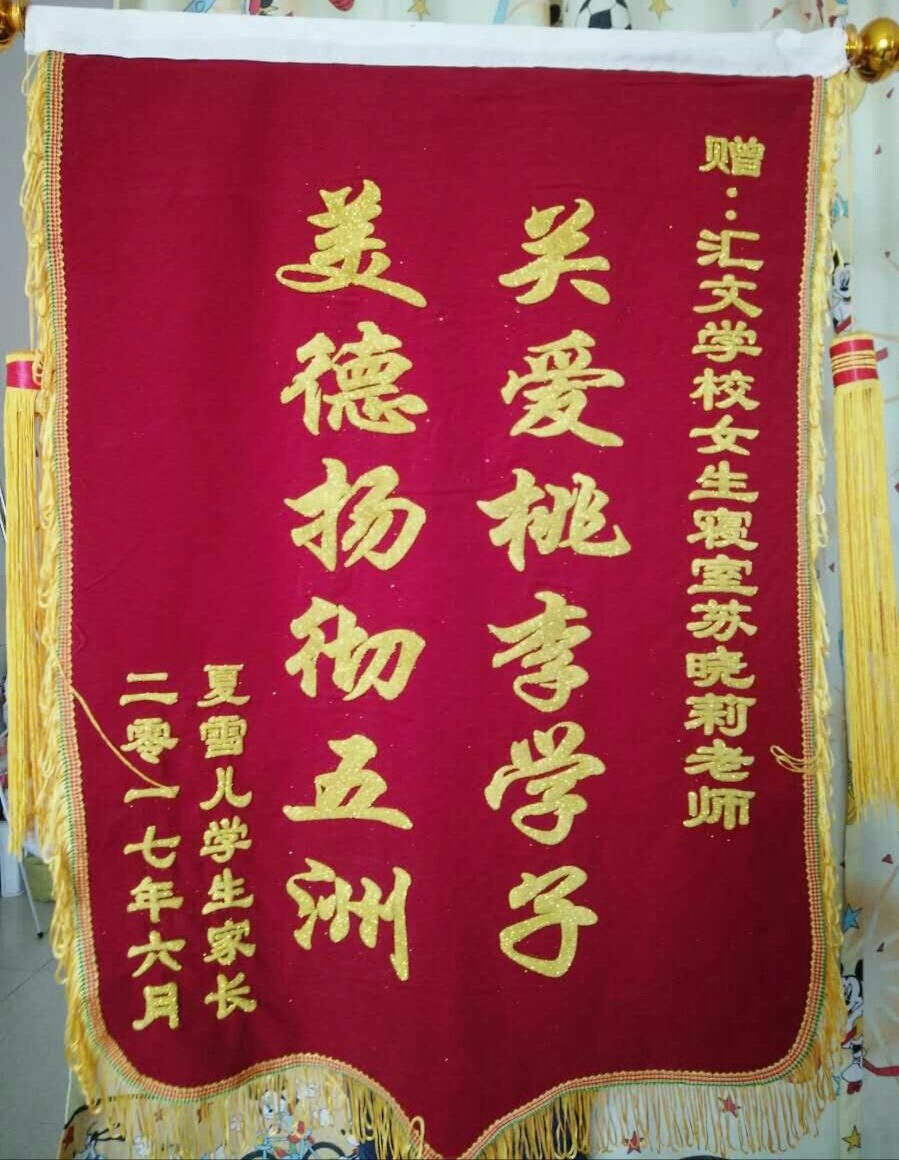 赠：汇文学校女生寝室苏晓莉老师
关爱桃李学子
美德扬彻五洲
夏雪儿学生家长
二零一七年六月